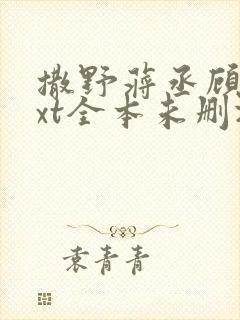 撒野蒋丞顾
xt全本未删
袁青青